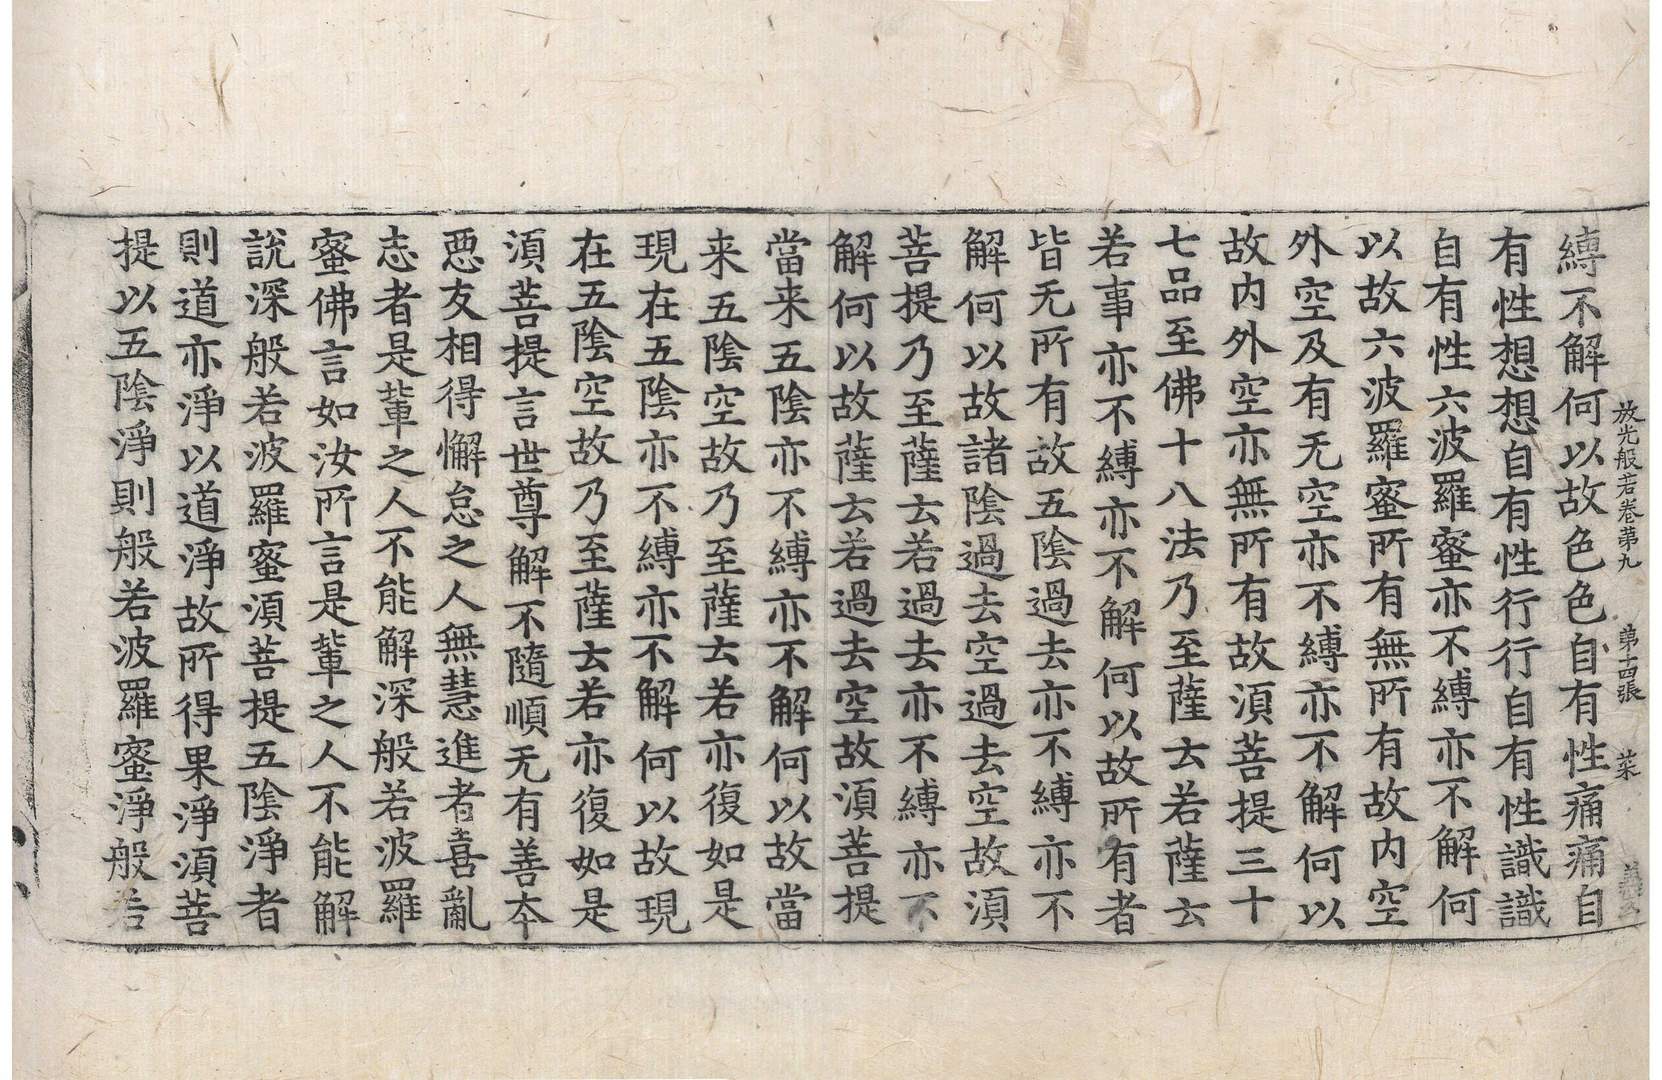 放光般若卷第九　第十四張　菜
縛不解何以故色色自有性痛痛自
有性想想自有性行行自有性識識
自有性六波羅蜜亦不縛亦不解何
以故六波羅蜜所有無所有故內空
外空及有无空亦不縛亦不解何以
故內外空亦無所有故湏菩提三十
七品至佛十八法乃至薩云若薩云
若事亦不縛亦不解何以故所有者
皆无所有故五陰過去亦不縛亦不
解何以故諸陰過去空過去空故湏
菩提乃至薩云若過去亦不縛亦不
解何以故薩云若過去空故湏菩提
當来五陰亦不縛亦不解何以故當
来五陰空故乃至薩云若亦復如是
現在五陰亦不縛亦不解何以故現
在五陰空故乃至薩云若亦復如是
湏菩提言世尊解不隨順无有善夲
惡友相得懈怠之人無慧進者喜亂
志者是輩之人不能解深般若波羅
蜜佛言如汝所言是輩之人不能解
說深般若波羅蜜湏菩提五陰淨者
則道亦淨以道淨故所得果淨湏菩
提以五陰淨則般若波羅蜜淨般若